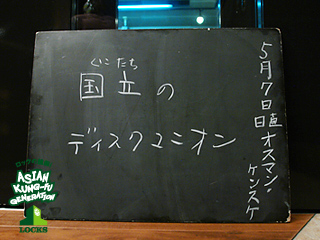 くにたち
国立の
ディスクユニオン
5月7日(日直 オスマン・ケンスケ
ASIAN
KUNG-FU
GENERATION
LOCKS